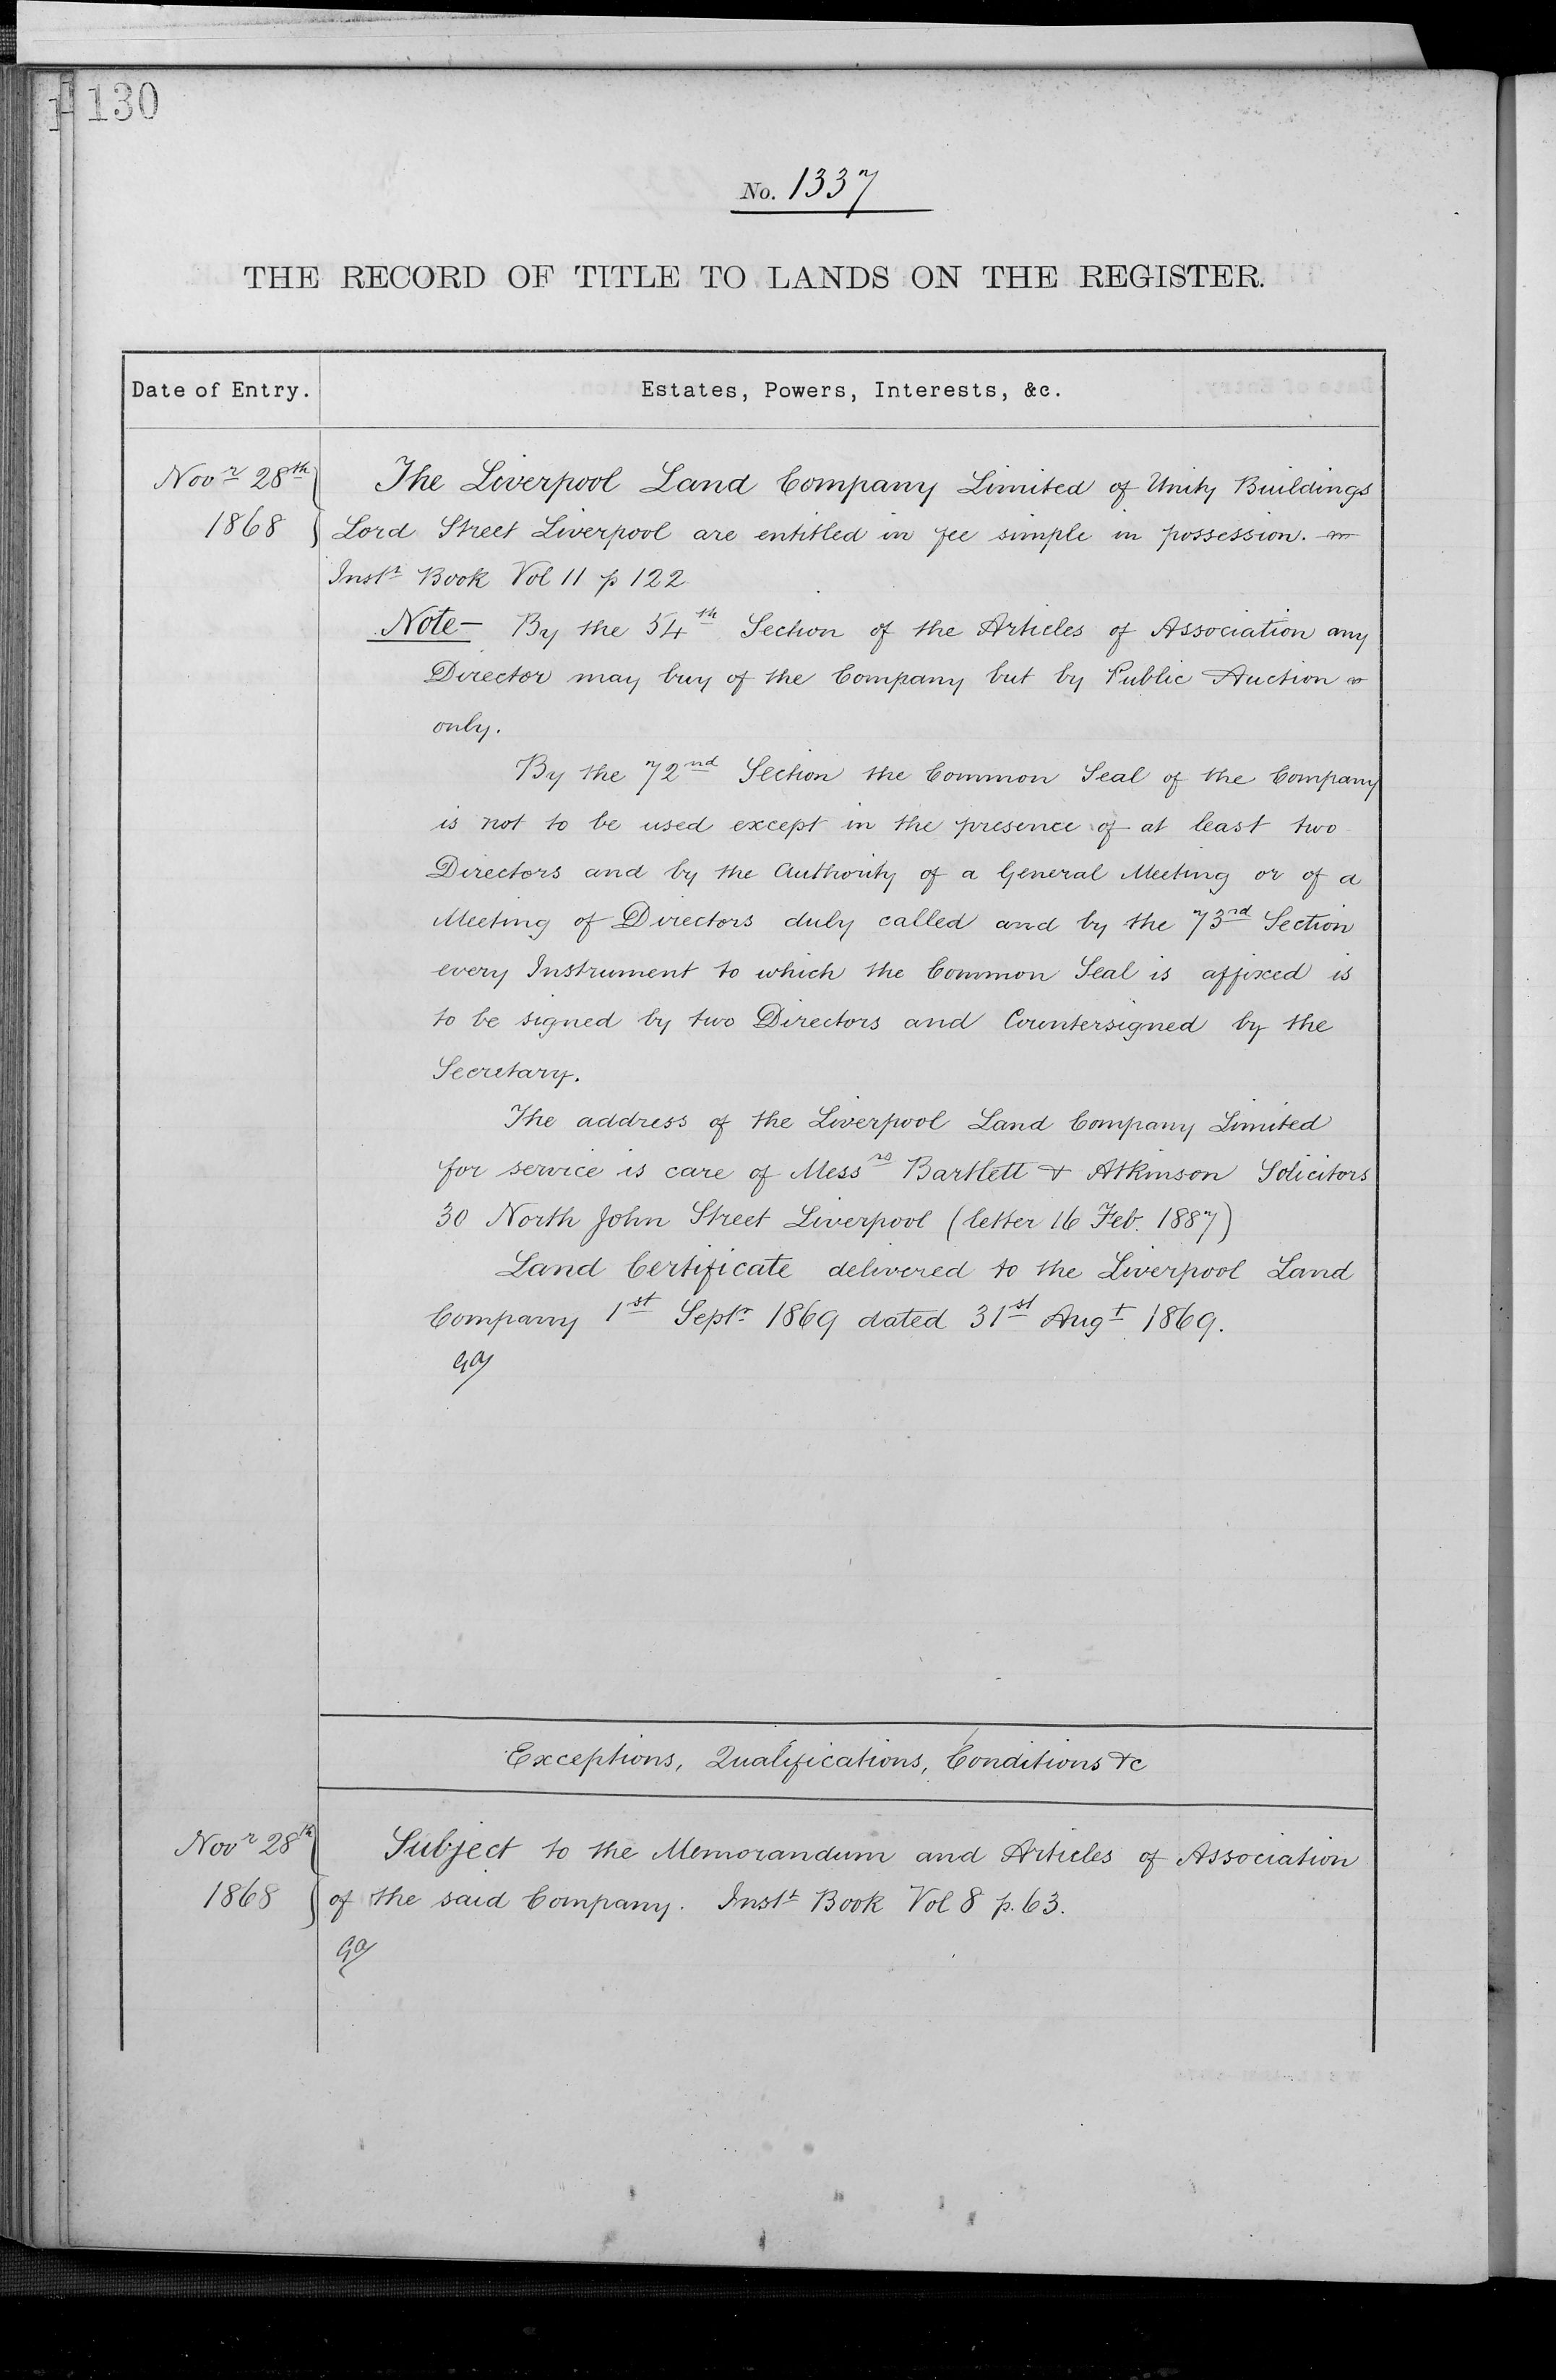 130
No. 1337
THE RECORD OF TITLE TO LANDS ON THE REGISTER.
Date of Entry. Estates, Powers, Interests, &c.
Novr 28th The Liverpool Land Company Limited of Unity Buildings
1868 Lord Street Liverpool are entitled in fee simple in possession.
Instt Book Vol 11 p 122
Note- By the 54th Section of the Articles of Association any
Director may buy of the Company but by Public Auction
only.
By the 72nd Section the Common Seal of the Company
is not to be used except in the presence of at least two
Directors and by the Authority of a General Meeting or of a
Meeting of Directors duly called and by the 73rd Section
every Instrument to which the Common Seal is affixed is
to be signed by two Directors and Countersigned by the
Secretary.
The address of the Liverpool Land Company Limited
for service is care of Messrs Bartlett & Atkinson Solicitors
30 North John Street Liverpool (letter 16 Feb. 1887)
Land Certificate delivered to the Liverpool Land
Company 1st Septr 1869 dated 31st Augt 1869.
Exceptions, Qualifications, Conditions &c
Novr 28th Subject to the Memorandum and Articles of Association
1868 of the said Company. Instt Book Vol 8 p. 63.